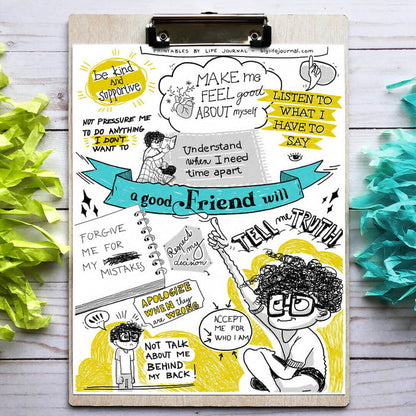 PRINTABLES BY LIFE JOURNAL - biglifejournal.com
be kind
and
supportive
MAKE me
FEEL good
ABOUT myself
LISTEN TO
WHAT I
HAVE TO
SAY
NOT PRESSURE ME
TO DO ANYTHING
I DON'T
WANT TO
Understand
when I need
time apart
a good Friend will
FORGIVE
ME FOR
MY MISTAKES
Respect
my
decision
TELL me TRUTH
APOLOGIZE
WHEN they
are WRONG
ACCEPT
ME FOR
WHO I AM
!!!
NOT TALK
ABOUT ME
BEHIND
MY BACK!